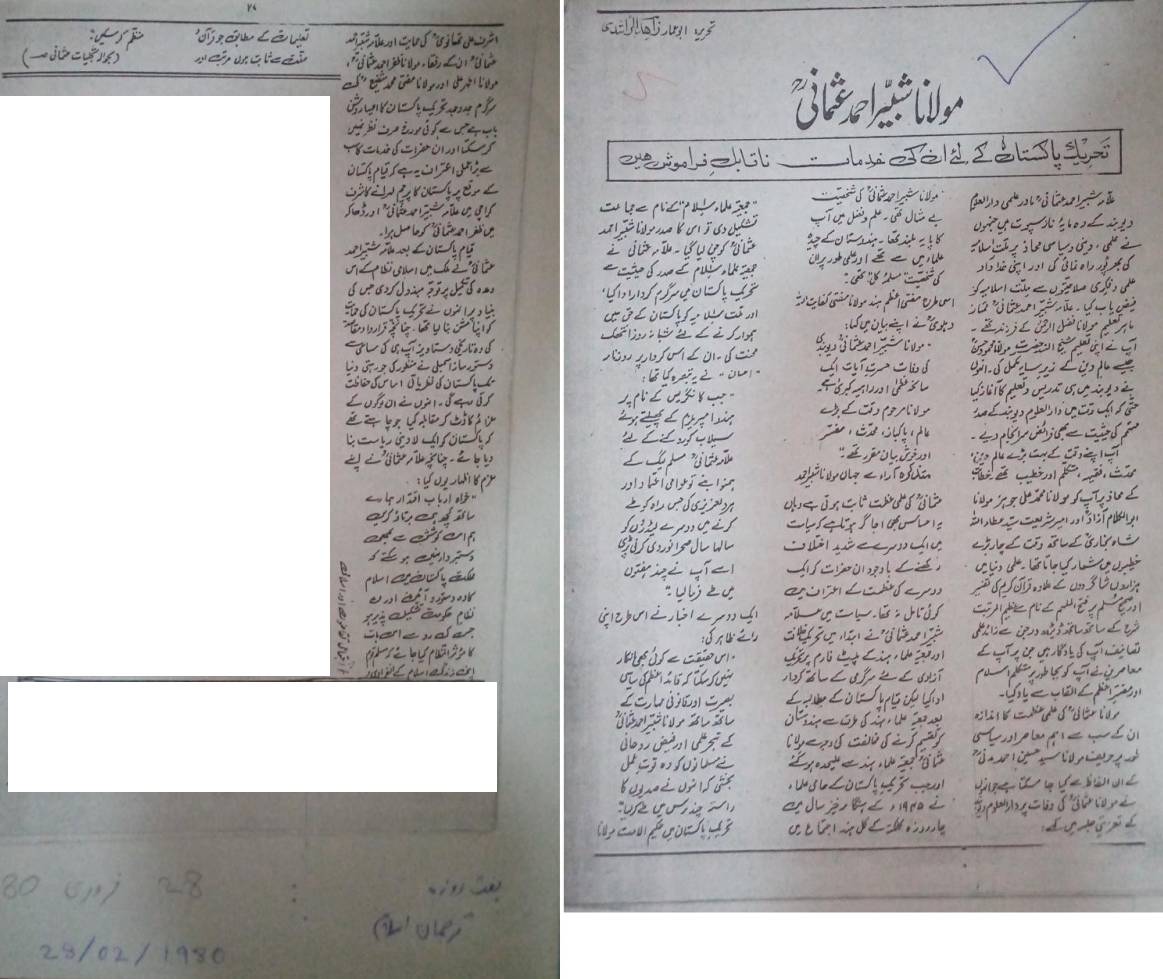 تحریر: ابوعمار زاهد الراشدی
مولانا شبیر احمد عثمانیؒ
تحریک پاکستان کے لئے ان کی خدمات ناقابل فراموش هیں
علامہ شبیر احمد عثمانیؒ مادر علمی دارالعلوم
دیوبند کے وہ مایۂ ناز سپوت ہیں جنہوں
نے علمی، دینی و سیاسی محاذ پر ملت اسلامیہ
کی بھرپور راہ نمائی کی اور اپنی خداداد
علمی و فکری صلاحیتوں سے ملت اسلامیہ کو
فیض یاب کیا۔ علامہ شبیر احمد عثمانیؒ ممتاز
ماہر تعلیم مولانا فضل الرحمٰن کے فرزند تھے۔
آپ نے اپنی تعلیم شیخ الہند حضرت مولانا محمود حسنؒ
جیسے عالم دین کے زیر سایہ مکمل کی۔ انہوں
نے دیوبند میں ہی تدریس و تعلیم کا آغاز کیا
حتٰی کہ ایک وقت میں دارالعلوم دیوبند کے صدر
مہتمم کی حیثیت سے بھی فرائض سرانجام دیے۔
آپ اپنے وقت کے بہت بڑے عالم دین،
محدث، فقیہہ، متکلم اور خطیب تھے۔ خطابت
کے محاذ پر آپ کو مولانا محمد علی جوہر مولانا
ابوالکلام آزادؒ اور امیر شریعت سید عطاء اللہ
شاہ بخاریؒ کے ساتھ وقت کے چار بڑے
خطیبوں میں شمار کیا جاتا تھا۔ علمی دنیا میں
ہزاروں شاگردوں کے علاوہ قرآن کریم کی تفسیر
اور صحیح مسلم پر فتح الملہم کے نام سے عظیم المرتبت
شرح کے ساتھ ساتھ ڈیڑھ درجن سے زائد علمی
تصانیف آپ کی یادگار ہیں جن پر آپ کے
معاصرین نے آپ کو بجا طور پر متکلم اسلام
اور مفسر اعظم کے القاب سے یاد کیا۔
مولانا عثمانیؒ کی علمی عظمت کا اندازہ
ان کے سب سے اہم معاصر اور سیاسی
طور پر حریف مولانا سید حسین احمد مدنیؒ
کے ان الفاظ سے کیا جا سکتا ہے جو انہوں
نے مولانا عثمانیؒ کی وفات پر دارالعلوم دیوبند
کے تعزیتی جلسہ میں کہے:
مولانا شبیر احمد عثمانیؒ کی شخصیت
بے مثال تھی۔ علم و فضل میں آپ
کا پایہ بلند تھا۔ ہندوستان کے چیدہ
علماء میں سے تھے اور علمی طور پر ان
کی شخصیت مسلمہ کل تھی۔"
اسی طرح مفتی اعظم ہند مولانا مفتی کفایت اللہ
دہلویؒ نے اپنے بیان میں کہا:
"مولانا شبیر احمد عثمانیؒ دیوبندی
کی وفات حسرت آیات ایک
سانحہ عظمٰی اور داہیہ کبریٰ ہے
مولانا مرحوم وقت کے بڑے
عالم، پاکباز، محدث، مفسر
اور خوش بیان مقرر تھے۔"
متذکرہ آراء سے جہاں مولانا شبیر احمد
عثمانیؒ کی علمی عظمت ثابت ہوتی ہے وہاں
یہ احساس بھی اجاگر ہوتا ہے کہ سیاست
میں ایک دوسرے سے شدید اختلاف
رکھنے کے باوجود ان حضرات کو ایک
دوسرے کی عظمت کے اعتراف میں
کوئی تامل نہ تھا۔ سیاست میں علامہ
شبیر احمد عثمانیؒ نے ابتداء میں تحریک خلافت
اور جمعیۃ علماء ہند کے پلیٹ فارم پر تحریک
آزادی کے لئے سرگرمی کے ساتھ کردار
ادا کیا لیکن قیام پاکستان کے مطالبہ کے
بعد جمعیۃ علماء ہند کی طرف سے ہندوستان
کو تقسیم کرنے کی مخالفت کی وجہ سے مولانا
عثمانیؒ جمعیۃ علماء ہند سے علیحدہ ہوگئے
اور جب تحریک پاکستان کے حامی علماء
نے ۱۹۴۵ء کے ہنگامہ خیز سال میں
چار روزہ کلکتہ کے کل ہند اجتماع میں
"جمعیۃ علماء اسلام" کے نام سے جماعت
تشکیل دی تو اس کا صدر مولانا شبیر احمد
عثمانیؒ کو چن لیا گیا۔ علامہ عثمانیؒ نے
جمعیۃ علماء اسلام کے صدر کی حیثیت سے
تحریک پاکستان میں سرگرم کردار ادا کیا،
اور ملت اسلامیہ کو پاکستان کے حق میں
ہموار کرنے کے لئے شبانہ روز انتھک
محنت کی۔ ان کے اس کردار پر روزنامہ
"احسان" نے یہ تبصرہ کیا تھا:
"جب کانگریس کے نام پر
ہندو امپریلزم کے پھیلتے ہوئے
سیلاب کو روکنے کے لئے
علامہ عثمانیؒ مسلم لیگ کے
ہمنوا بنے تو عوامی اعتماد اور
ہردلعزیزی کی جس راہ کو طے
کرنے میں دوسرے لیڈروں کو
سالہا سال صحرا نوردی کرنی پڑی
اسے آپ نے چند ہفتوں
میں طے فرما لیا۔"
ایک دوسرے اخبار نے اس طرح اپنی
رائے ظاہر کی:
"اس حقیقت سے کوئی بھی انکار
نہیں کر سکتا کہ قائد اعظم کی سیاسی
بصیرت اور قانونی مہارت کے
ساتھ ساتھ مولانا شبیر احمد عثمانیؒ
کے تبحر علمی اور فیض روحانی
نے مسلمانوں کو وہ قوت عمل
بخشی کہ انہوں نے صدیوں کا
راستہ چند برس میں طے کر لیا"
تحریک پاکستان میں حکیم الامت مولانا
۲۸
اشرف علی تھانویؒ کی حمایت اور علامہ شبیر احمد
عثمانیؒ ان کے رفقاء مولانا ظفر احمد عثمانیؒ،
مولانا اطہر علی اور مولانا مفتی محمد شفیعؒ کی
سرگرم جدوجہد تحریک پاکستان کا ایسا روشن
باب ہے جس سے کوئی مورخ صرف نظر نہیں
کر سکتا اور ان حضرات کی خدمات کا سب
سے بڑا عملی اعتراف یہ ہے کہ قیام پاکستان
کے موقع پر پاکستان کا پرچم لہرانے کا شرف
کراچی میں علامہ شبیر احمد عثمانیؒ اور ڈھاکہ
میں ظفر احمد عثمانیؒ کو حاصل ہوا۔
قیام پاکستان کے بعد علامہ شبیر احمد
عثمانیؒ نے ملک میں اسلامی نظام کے اس
وعدہ کی تکمیل پر توجہ مبذول کر دی جس کی
بنیاد پر انہوں نے تحریک پاکستان کی حمایت
کو اپنا مشن بنا لیا تھا۔ چنانچہ قرارداد مقاصد
کی وہ تاریخی دستاویز آپ ہی کی مساعی سے
دستور ساز اسمبلی نے منظور کی جو رہتی دنیا
تک پاکستان کی نظریاتی اساس کی حفاظت
کرتی رہے گی۔ انہوں نے ان لوگوں کے
عزائم کا ڈٹ کر مقابلہ کیا جو چاہتے تھے
کہ پاکستان کو ایک لادینی ریاست بنا
دیا جائے۔ چنانچہ علامہ عثمانیؒ نے اپنے
عزم کا اظہار یوں کیا:
"خواہ ارباب اقتدار ہمارے
ساتھ کچھ ہی برتاؤ کریں
ہم اس کوشش سے کبھی
دستبردار نہیں ہو سکتے کہ
مملکت پاکستان میں اسلام
کا وہ دستور و آئین اور وہ
نظام حکومت تشکیل پذیر ہو
جس کی رو سے اس بات
کا مؤثر انتظام کیا جائے کہ مسلم قوم
اپنی زندگی اسلام کے انفرادی و
تعلیمات کے مطابق جو قرآن و
سنت سے ثابت ہوں مرتب اور
منظم کر سکیں؛
(بحوالہ تجلیات عثمانی صـ)
ہفت روزہ : 28 فروری 80
ترجمان اسلام
28/02/1980